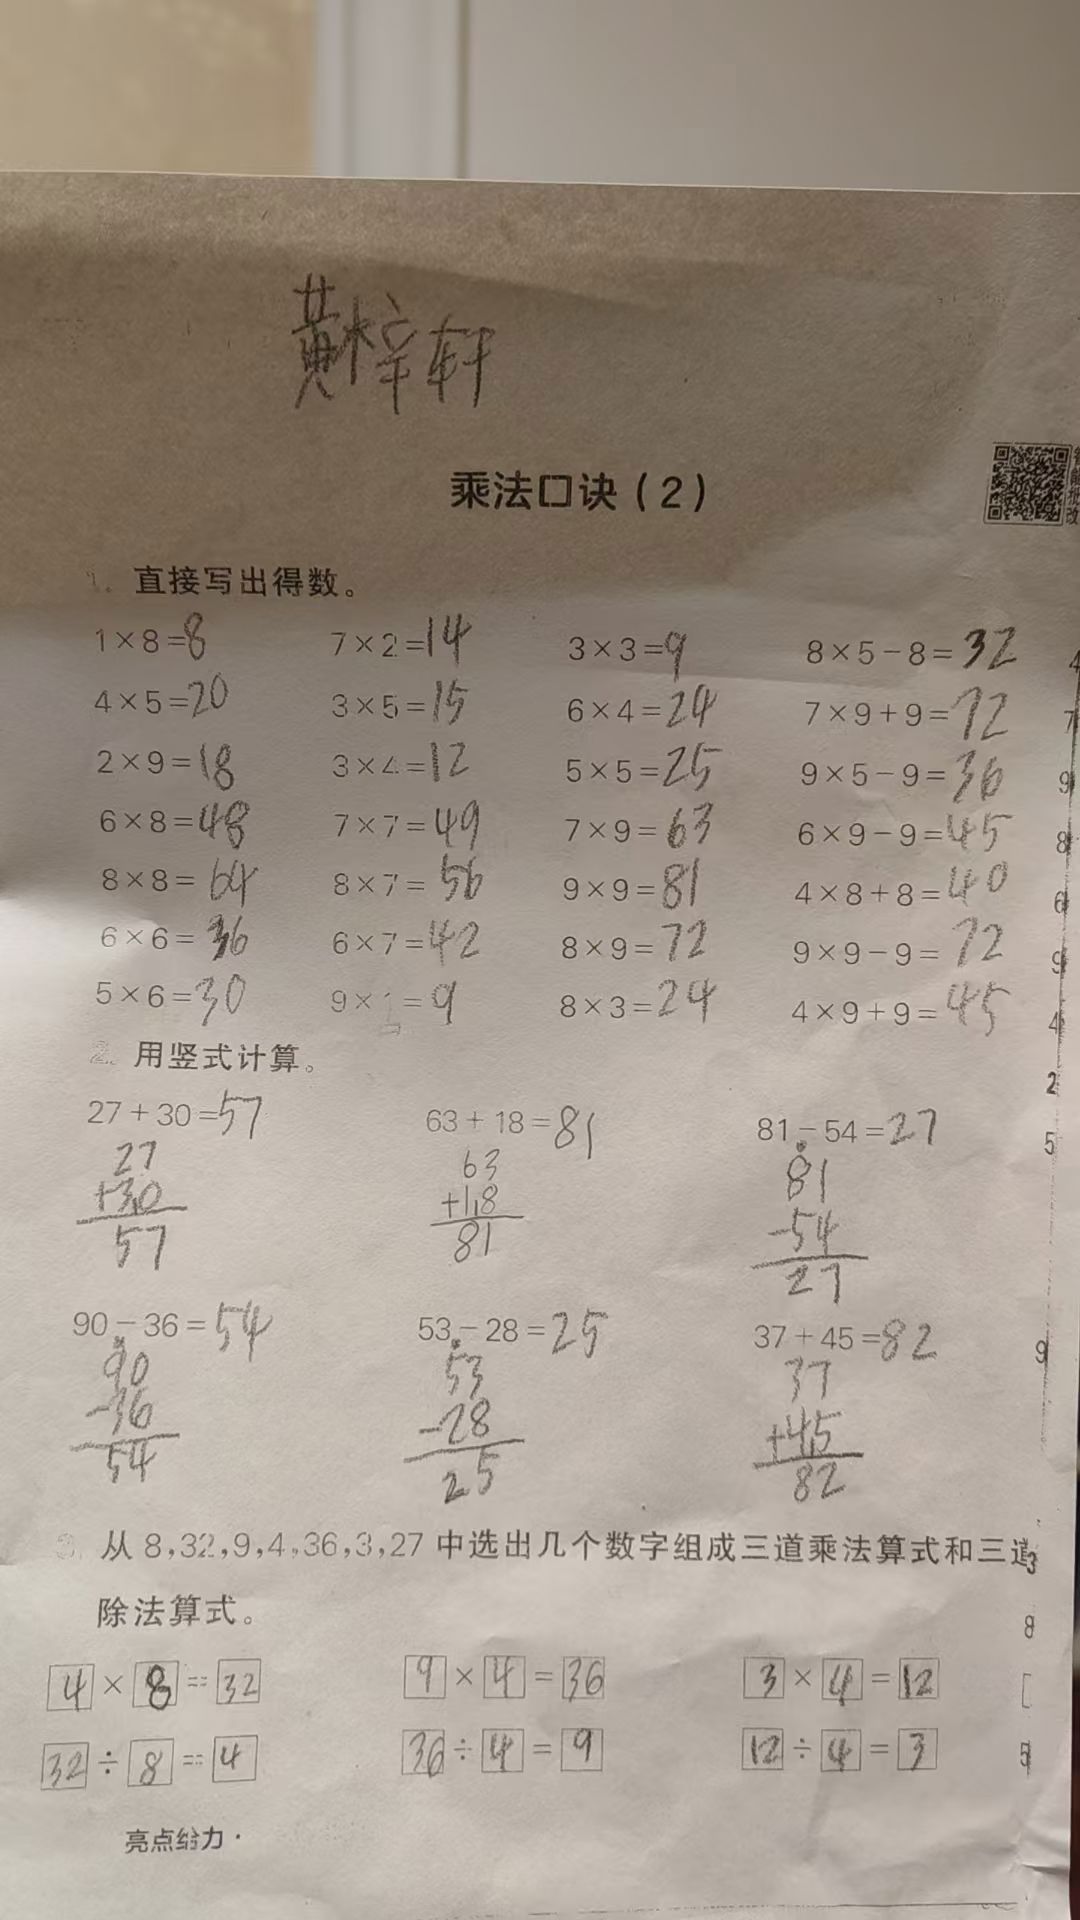 黄梓轩
乘法口诀(2)
智能批改
1. 直接写出得数。
1×8=8 7×2=14 3×3=9 8×5-8=32
4×5=20 3×5=15 6×4=24 7×9+9=72
2×9=18 3×4=12 5×5=25 9×5-9=36
6×8=48 7×7=49 7×9=63 6×9-9=45
8×8=64 8×7=56 9×9=81 4×8+8=40
6×6=36 6×7=42 8×9=72 9×9-9=72
5×6=30 9×1=9 8×3=24 4×9+9=45
2. 用竖式计算。
27+30=57 63+18=81 81-54=27
27 63 81
+30 +18 -54
57 81 27
90-36=54 53-28=25 37+45=82
90 53 37
-36 -28 +45
54 25 82
3. 从8,32,9,4,36,3,27中选出几个数字组成三道乘法算式和三道
除法算式。
4×8=32 9×4=36 3×4=12
32÷8=4 36÷4=9 12÷4=3
亮点给力·